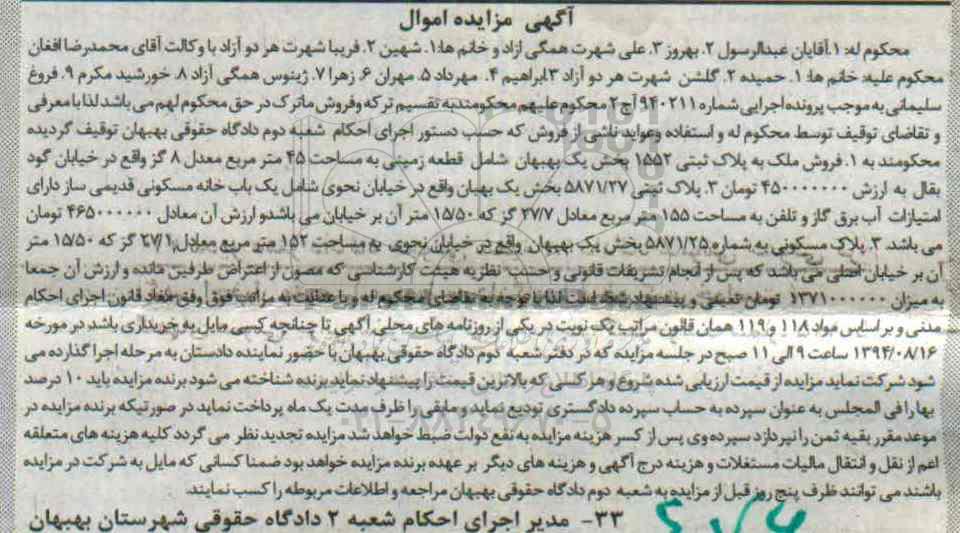 آگهی مزایده اموال
محکوم له: ۱.آقایان عبدالرسول ۲. بهروز ۳. علی شهرت همگی ازاد و خانم ها: ۱. شهین ۲. فریبا شهرت هر دو آزاد با وکالت آقای محمدرضا افغان
محکوم علیه: خانم ها: ۱. حمیده ۲. گلشن شهرت هر دو آزاد ۳.ابراهیم ۴. مهرداد ۵. مهران ۶. زهرا ۷. ژینوس همگی آزاد ۸. خورشید مکرم ۹. فروغ
سلیمانی به موجب پرونده اجرایی شماره ۹۴۰۲۱۱ آج ۲ محکوم علیهم محکومند به تقسیم ترکه وفروش ماترک در حق محکوم لهم می باشد لذا با معرفی
و تقاضای توقیف توسط محکوم له و استفاده وعواید ناشی از فروش که حسب دستور اجرای احکام شعبه دوم دادگاه حقوقی بهبهان توقیف گردیده
محکومند به ۱. فروش ملک به پلاک ثبتی ۱۵۵۲ بخش یک بهبهان شامل قطعه زمینی به مساحت ۴۵ متر مربع معدل ۸ گز واقع در خیابان گود
بقال به ارزش ۴۵۰۰۰۰۰۰۰ تومان ۳. پلاک ثبتی ۵۸۷۱/۲۷ بخش یک بهبان واقع در خیابان نحوی شامل یک باب خانه مسکونی قدیمی ساز دارای
امتیازات آب برق گاز و تلفن به مساحت ۱۵۵ متر مربع معادل ۲۷/۷ گز که ۱۵/۵۰ متر آن بر خیابان می باشدو ارزش آن معادل ۴۶۵۰۰۰۰۰۰ تومان
می باشد ۳. پلاک مسکونی به شماره ۵۸۷۱/۲۵ بخش یک بهبهان واقع در خیابان نحوی به مساحت ۱۵۲ متر مربع معادل ۲۷/۱ گز که ۱۵/۵۰ متر
آن بر خیابان اصلی می باشد که پس از انجام تشریفات قانونی و حسب نظریه هیئت کارشناسی که مصون از اعتراض طرفین مانده و ارزش آن جمعا
به میزان ۱۳۷۱۰۰۰۰۰۰ تومان تعیین و پیشنهاد شده است لذا با توجه به تقاضای محکوم له و با عنایت به مراتب فوق وفق مفاد قانون اجرای احکام
مدنی و بر اساس مواد ۱۱۸ و ۱۱۹ همان قانون مراتب یک نوبت در یکی از روزنامه های محلی آگهی تا چنانچه کسی مایل به خریداری باشد در مورخه
۱۳۹۴/۰۸/۱۶ ساعت ۹ الی ۱۱ صبح در جلسه مزایده که در دفتر شعبه دوم دادگاه حقوقی بهبهان با حضور نماینده دادستان به مرحله اجرا گذارده می
شود شرکت نماید مزایده از قیمت ارزیابی شده شروع و هر کسی که بالاترین قیمت را پیشنهاد نماید برنده شناخته می شود برنده مزایده باید ۱۰ درصد
بها را فی المجلس به عنوان سپرده به حساب سپرده دادگستری تودیع نماید و مابقی را ظرف مدت یک ماه پرداخت نماید در صورتیکه برنده مزایده در
موعد مقرر بقیه ثمن را نپردازد سپرده وی پس از کسر هزینه مزایده به نفع دولت ضبط خواهد شد مزایده تجدید نظر می گردد کلیه هزینه های متعلقه
اعم از نقل و انتقال مالیات مستغلات و هزینه درج آگهی و هزینه های دیگر بر عهده برنده مزایده خواهد بود ضمنا کسانی که مایل به شرکت در مزایده
باشند می توانند ظرف پنج روز قبل از مزایده به شعبه دوم دادگاه حقوقی بهبهان مراجعه و اطلاعات مربوطه را کسب نمایند.
۳۳- مدیر اجرای احکام شعبه ۲ دادگاه حقوقی شهرستان بهبهان